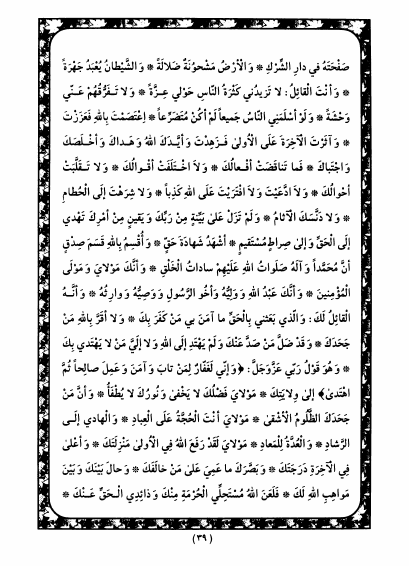 صَفْحَتَهُ فِي دارِ الشِّرْكِ * وَالْأَرْضُ مَشْحُونَةٌ ضَلالَةً * وَالشَّيْطانُ يُعْبَدُ جَهْرَةً
* وَأَنْتَ الْقائِلُ: لا تَزيدُني كَثْرَةُ النّاسِ حَوْلي عِزَّةً * وَلا تَفَرُّقُهُمْ عَنّي
وَحْشَةً * وَلَوْ أَسْلَمَنِي النّاسُ جَميعاً لَمْ أَكُنْ مُتَضَرِّعاً * اِعْتَصَمْتَ بِاللهِ فَعَزَزْتَ
* وَآثَرْتَ الْآخِرَةَ عَلَى الْأُولىٰ فَزَهِدْتَ وَأَيَّدَكَ اللهُ وَهَداكَ وَأَخْلَصَكَ
وَاجْتَباكَ * فَما تَناقَضَتْ أَفْعالُكَ * وَلاَ اخْتَلَفَتْ أَقْوالُكَ * وَلا تَقَلَّبَتْ
أَحْوالُكَ * وَلاَ ادَّعَيْتَ وَلاَ افْتَرَيْتَ عَلَى اللهِ كَذِباً * وَلا شَرِهْتَ إِلَى الْحُطامِ
* وَلا دَنَّسَكَ الْآثامُ * وَلَمْ تَزَلْ عَلىٰ بَيِّنَةٍ مِنْ رَبِّكَ وَيَقينٍ مِنْ أَمْرِكَ تَهْدي
إِلَى الْحَقِّ وَإِلىٰ صِراطٍ مُسْتَقيمٍ * أَشْهَدُ شَهادَةَ حَقٍّ * وَأُقْسِمُ بِاللهِ قَسَمَ صِدْقٍ
أَنَّ مُحَمَّداً وَآلَهُ صَلَواتُ اللهِ عَلَيْهِمْ ساداتُ الْخَلْقِ * وَأَنَّكَ مَوْلايَ وَمَوْلَى
الْمُؤْمِنينَ * وَأَنَّكَ عَبْدُ اللهِ وَوَلِيُّهُ وَأَخُو الرَّسُولِ وَوَصِيُّهُ وَوارِثُهُ * وَأَنَّهُ
الْقائِلُ لَكَ: وَالَّذي بَعَثَني بِالْحَقِّ ما آمَنَ بي مَنْ كَفَرَ بِكَ * وَلا أَقَرَّ بِاللهِ مَنْ
جَحَدَكَ * وَقَدْ ضَلَّ مَنْ صَدَّ عَنْكَ وَلَمْ يَهْتَدِ إِلَى اللهِ وَلا إِلَيَّ مَنْ لا يَهْتَدي بِكَ
* وَهُوَ قَوْلُ رَبّي عَزَّوَجَلَّ: ﴿وَإِنّي لَغَفّارٌ لِمَنْ تابَ وَآمَنَ وَعَمِلَ صالِحاً ثُمَّ
اهْتَدىٰ﴾ إِلىٰ وِلايَتِكَ * مَوْلايَ فَضْلُكَ لا يَخْفىٰ وَنُورُكَ لا يُطْفَأُ * وَأَنَّ مَنْ
جَحَدَكَ الظَّلُومُ الْأَشْقىٰ * مَوْلايَ أَنْتَ الْحُجَّةُ عَلَى الْعِبادِ * وَالْهادي إِلَى
الرَّشادِ * وَالْعُدَّةُ لِلْمَعادِ * مَوْلايَ لَقَدْ رَفَعَ اللهُ فِي الْأُولىٰ مَنْزِلَتَكَ * وَأَعْلىٰ
فِي الْآخِرَةِ دَرَجَتَكَ * وَبَصَّرَكَ ما عَمِيَ عَلىٰ مَنْ خالَفَكَ * وَحالَ بَيْنَكَ وَبَيْنَ
مَواهِبِ اللهِ لَكَ * فَلَعَنَ اللهُ مُسْتَحِلِّي الْحُرْمَةِ مِنْكَ وَذائِدِي الْحَقِّ عَنْكَ *
(٣٩)